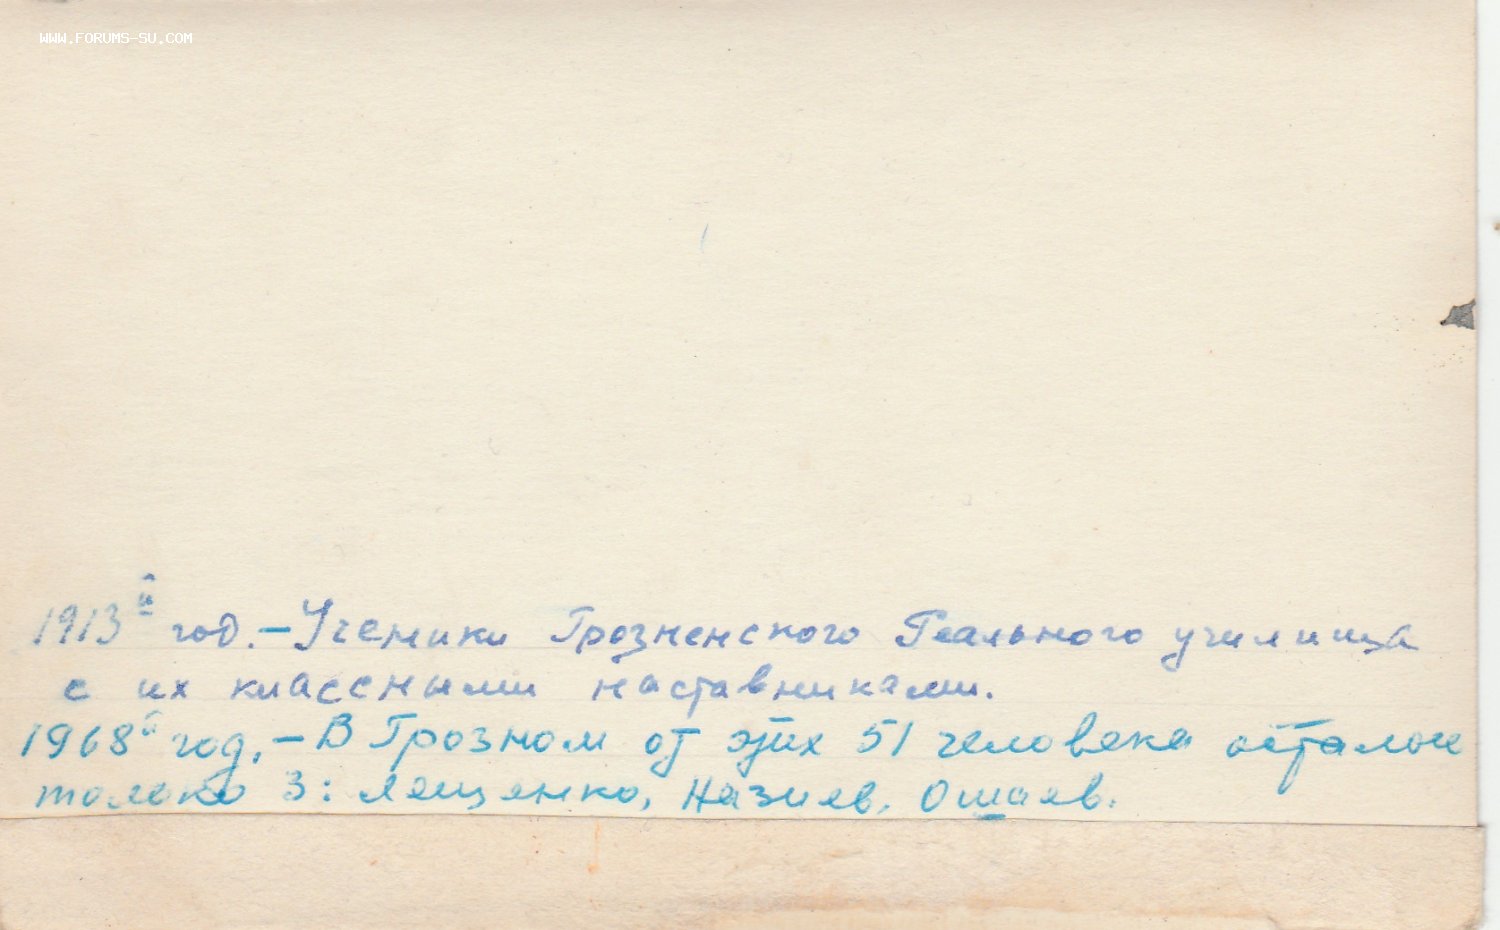 WWW.FORUMS-SU.COM
1913й год. – Ученики Грозненского Реального училища
с их классными наставниками.
1968й год, – В Грозном от этих 51 человека осталось
только 3: Лященко, Назиев, Ошаев.